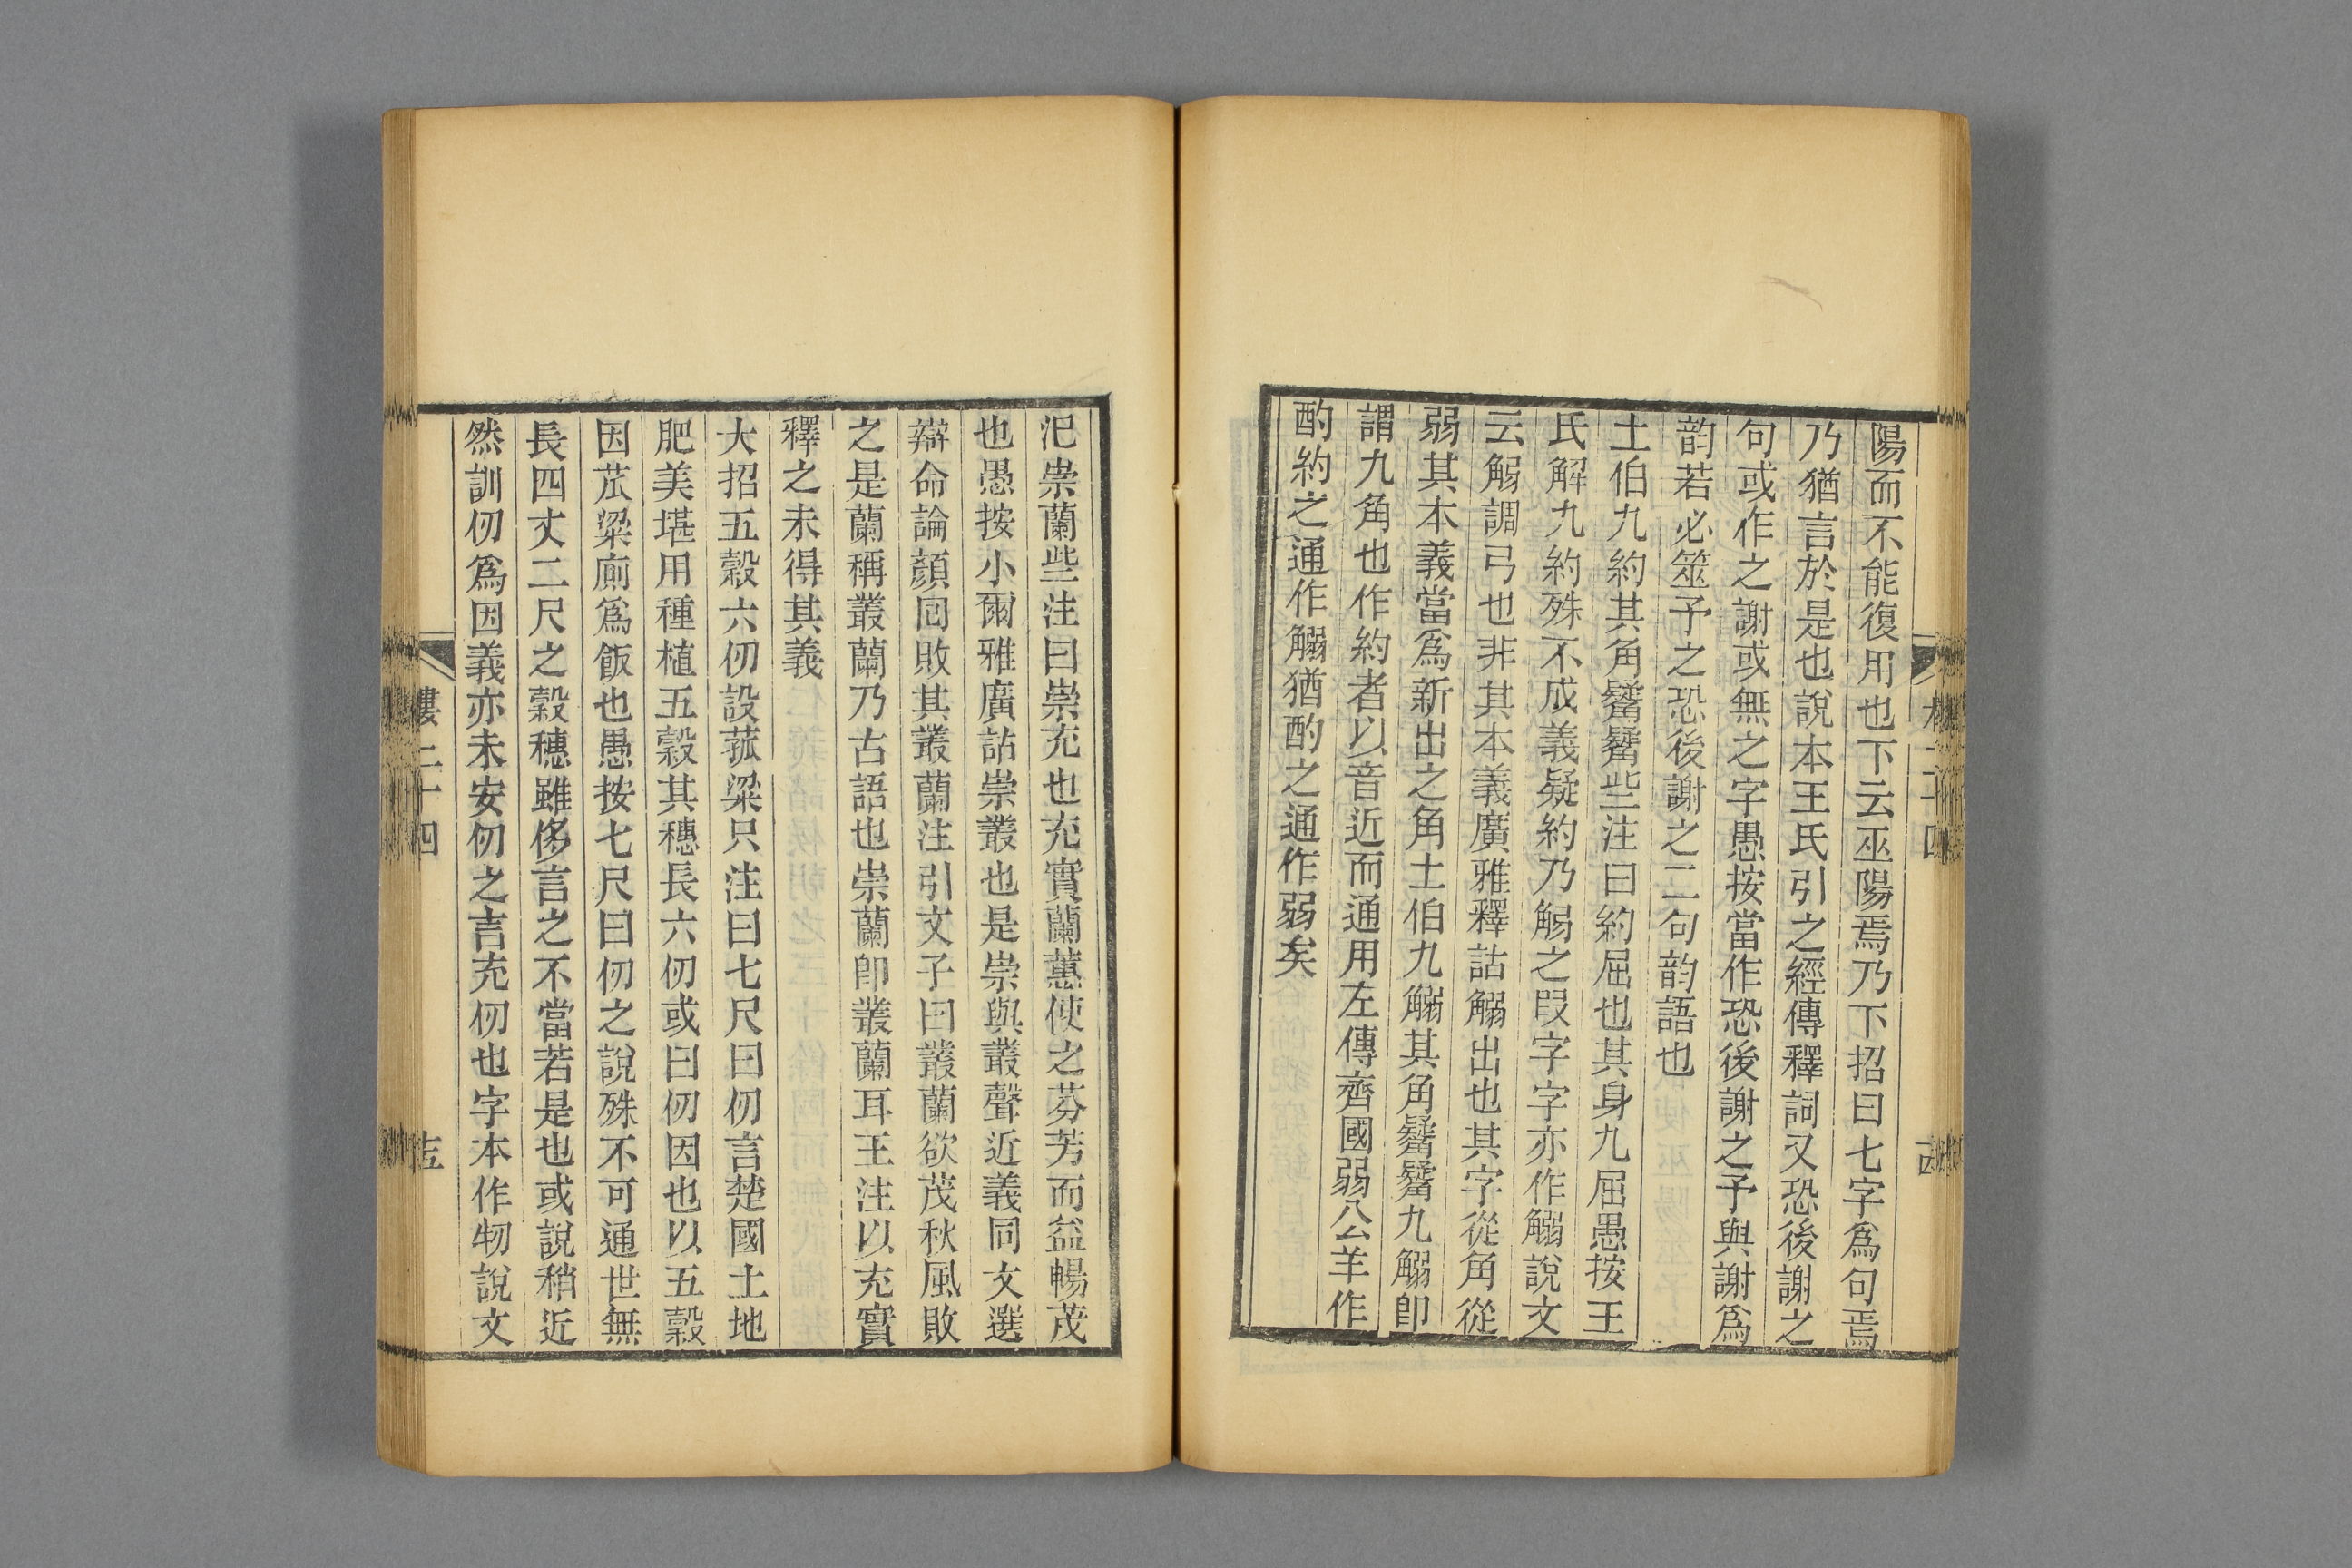 陽而不能復用也下云巫陽焉乃下招曰七字爲句焉
乃猶言於是也說本王氏引之經傳釋詞又恐後謝之
句或作之謝或無之字愚按當作恐後謝之予與謝爲
韵若必筮予之恐後謝之二句韵語也
土伯九約其角觺觺些注曰約屈也其身九屈愚按王
氏解九約殊不成義疑約乃觓之叚字字亦作觹說文
云觓調弓也非其本義廣雅釋詁觹出也其字從角從
弱其本義當爲新出之角土伯九觹其角觺觺九觹卽
謂九角也作約者以音近而通用左傳齊國弱公羊作
酌約之通作觹猶酌之通作弱矣
氾崇蘭些注曰崇充也充實蘭蕙使之芬芳而益暢茂
也愚按小爾雅廣詁崇叢也是崇與叢聲近義同文選
辯命論顏回敗其叢蘭注引文子曰叢蘭欲茂秋風敗
之是蘭稱叢蘭乃古語也崇蘭卽叢蘭耳王注以充實
釋之未得其義
大招五穀六仞設菰粱只注曰七尺曰仞言楚國土地
肥美堪用種植五穀其穗長六仞或曰仞因也以五穀
因苽粱廁爲飯也愚按七尺曰仞之說殊不可通世無
長四丈二尺之穀穗雖侈言之不當若是也或說稍近
然訓仞爲因義亦未安仞之言充仞也字本作牣說文
樓二十四
十五